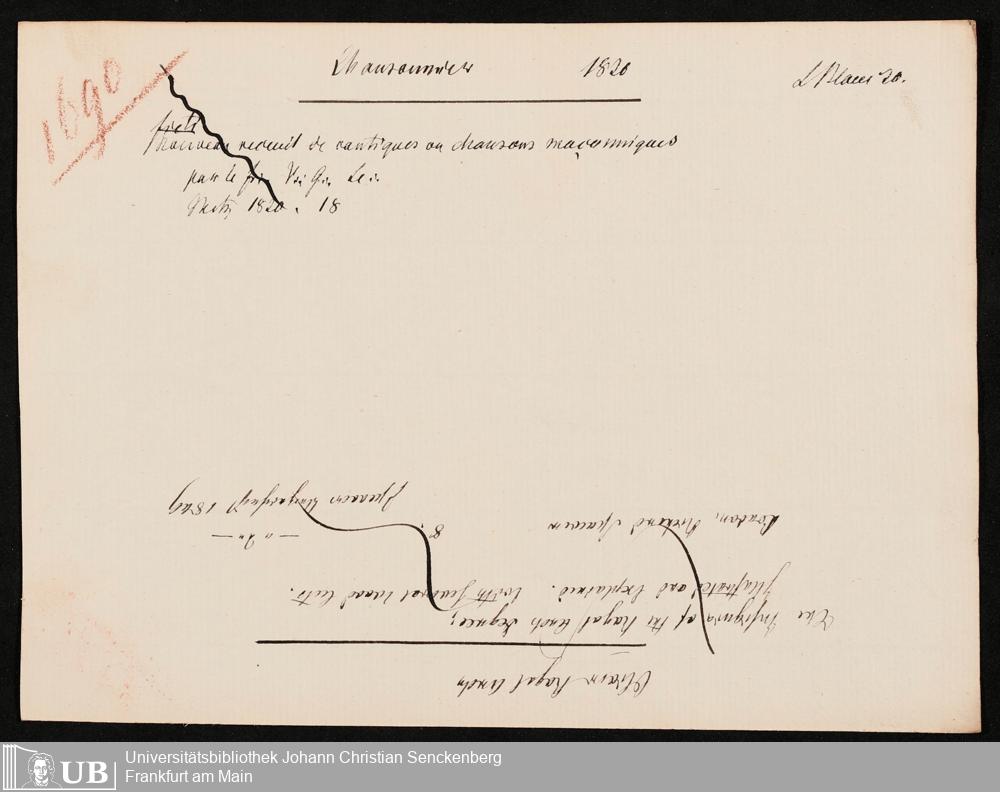 1690
Chansonnier 1820
petit
Nouveau recueil de cantiques ou chansons maçonniques
par le fr∴ V∴ G∴ Le∴
Metz 1820. 18
Oliver Royal Arch
The Insignia of the Royal Arch Degree;
Illustrated and Explained. With several wood Cuts.
London, Richard Spencer 8.
1849
UB Universitätsbibliothek Johann Christian Senckenberg
Frankfurt am Main